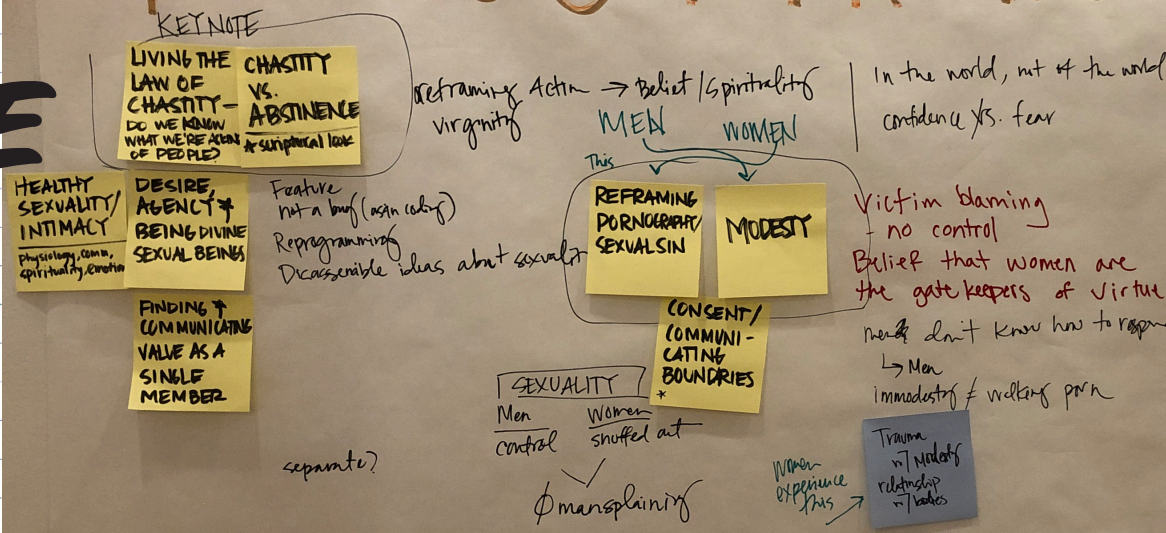 KEYNOTE
LIVING THE
LAW OF
CHASTITY –
DO WE KNOW
WHAT WE'RE
OF PEOPLE?
CHASTITY
VS.
ABSTINENCE
* scriptural look
reframing Action → Belief / Spirituality
virginity
MEN WOMEN
In the world, not of the world
confidence vs. fear
HEALTHY
SEXUALITY/
INTIMACY
physiology, comm,
spirituality, emotion
DESIRE,
AGENCY +
BEING DIVINE
SEXUAL BEINGS
Feature
not a bug (as in coding)
Reprogramming
ideas about sexuality
This
REFRAMING
PORNOGRAPHY/
SEXUAL SIN
MODESTY
Victim blaming
- no control
Belief that women are
the gatekeepers of virtue
don't know how to
↳ Men
immodesty ≠ walking porn
FINDING +
COMMUNICATING
VALUE AS A
SINGLE
MEMBER
CONSENT/
COMMUNI-
CATING
BOUNDRIES
*
SEXUALITY
Men Women
control snuffed out
separate?
Ø mansplaining
Women
experience
this
Trauma
w/ Modesty
relationship
w/ bodies